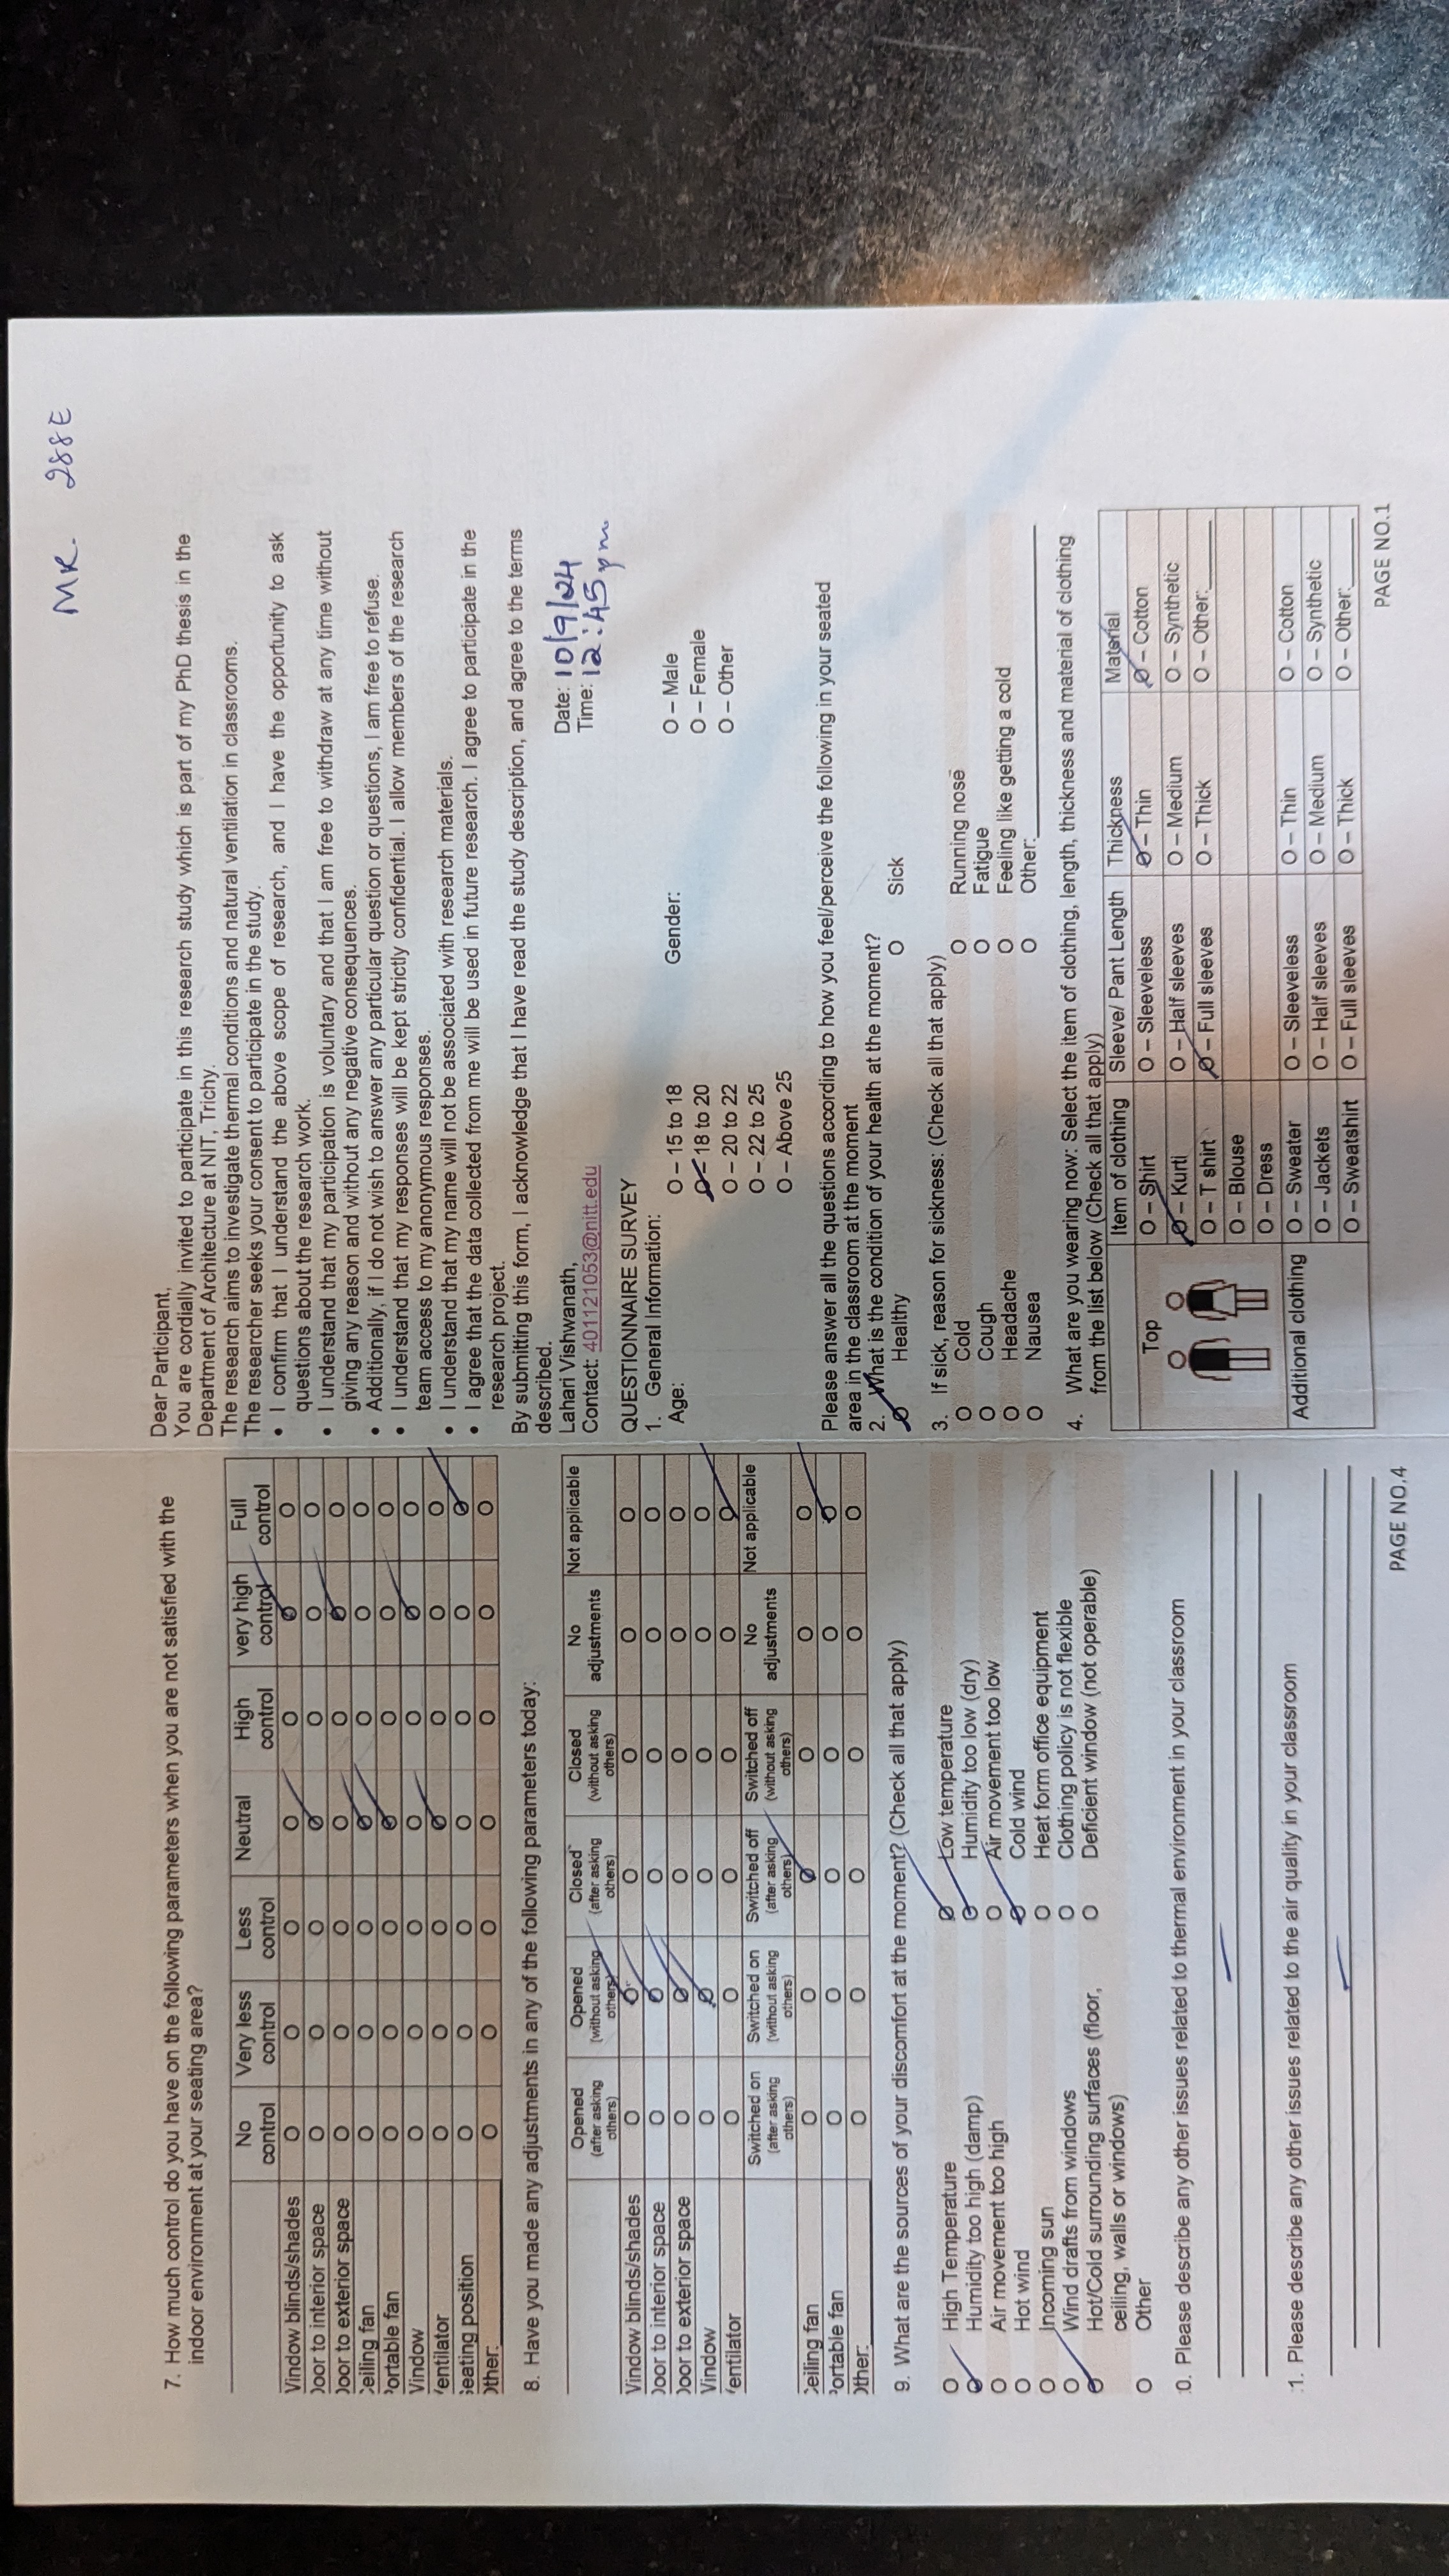 MR. 288E
7. How much control do you have on the following parameters when you are not satisfied with the
indoor environment at your seating area?
No control Very less control Less control Neutral High control very high control Full control
Window blinds/shades O O O O O O O
Door to interior space O O O O O O O
Door to exterior space O O O O O O O
Ceiling fan O O O O O O O
Portable fan O O O O O O O
Window O O O O O O O
Ventilator O O O O O O O
Seating position O O O O O O O
Other: O O O O O O O
8. Have you made any adjustments in any of the following parameters today:
Opened (after asking others) Opened (without asking others) Closed (after asking others) Closed (without asking others) No adjustments Not applicable
Window blinds/shades O O O O O O
Door to interior space O O O O O O
Door to exterior space O O O O O O
Window O O O O O O
Ventilator O O O O O O
Switched on (after asking others) Switched on (without asking others) Switched off (after asking others) Switched off (without asking others) No adjustments Not applicable
Ceiling fan O O O O O O
Portable fan O O O O O O
Other: O O O O O O
9. What are the sources of your discomfort at the moment? (Check all that apply)
O High Temperature O Low temperature
O Humidity too high (damp) O Humidity too low (dry)
O Air movement too high O Air movement too low
O Hot wind O Cold wind
O Incoming sun O Heat form office equipment
O Wind drafts from windows O Clothing policy is not flexible
O Hot/Cold surrounding surfaces (floor, O Deficient window (not operable)
ceiling, walls or windows)
O Other
0. Please describe any other issues related to thermal environment in your classroom
1. Please describe any other issues related to the air quality in your classroom
PAGE NO.4
Dear Participant,
You are cordially invited to participate in this research study which is part of my PhD thesis in the
Department of Architecture at NIT, Trichy.
The research aims to investigate thermal conditions and natural ventilation in classrooms.
The researcher seeks your consent to participate in the study.
• I confirm that I understand the above scope of research, and I have the opportunity to ask
questions about the research work.
• I understand that my participation is voluntary and that I am free to withdraw at any time without
giving any reason and without any negative consequences.
• Additionally, if I do not wish to answer any particular question or questions, I am free to refuse.
• I understand that my responses will be kept strictly confidential. I allow members of the research
team access to my anonymous responses.
• I understand that my name will not be associated with research materials.
• I agree that the data collected from me will be used in future research. I agree to participate in the
research project.
By submitting this form, I acknowledge that I have read the study description, and agree to the terms
described.
Lahari Vishwanath, Date: 10/9/24
Contact: 401121053@nitt.edu Time: 12:45 pm
QUESTIONNAIRE SURVEY
1. General Information:
Age: O – 15 to 18 Gender: O – Male
O – 18 to 20 O – Female
O – 20 to 22 O – Other
O – 22 to 25
O – Above 25
Please answer all the questions according to how you feel/perceive the following in your seated
area in the classroom at the moment
2. What is the condition of your health at the moment?
O Healthy O Sick
3. If sick, reason for sickness: (Check all that apply)
O Cold O Running nose
O Cough O Fatigue
O Headache O Feeling like getting a cold
O Nausea O Other:
4. What are you wearing now: Select the item of clothing, length, thickness and material of clothing
from the list below (Check all that apply)
Item of clothing Sleeve/ Pant Length Thickness Material
Top O – Shirt O – Sleeveless O – Thin O – Cotton
O – Kurti O – Half sleeves O – Medium O – Synthetic
O – T shirt O – Full sleeves O – Thick O – Other:
O – Blouse
O – Dress
Additional clothing O – Sweater O – Sleeveless O – Thin O – Cotton
O – Jackets O – Half sleeves O – Medium O – Synthetic
O – Sweatshirt O – Full sleeves O – Thick O – Other:
PAGE NO.1